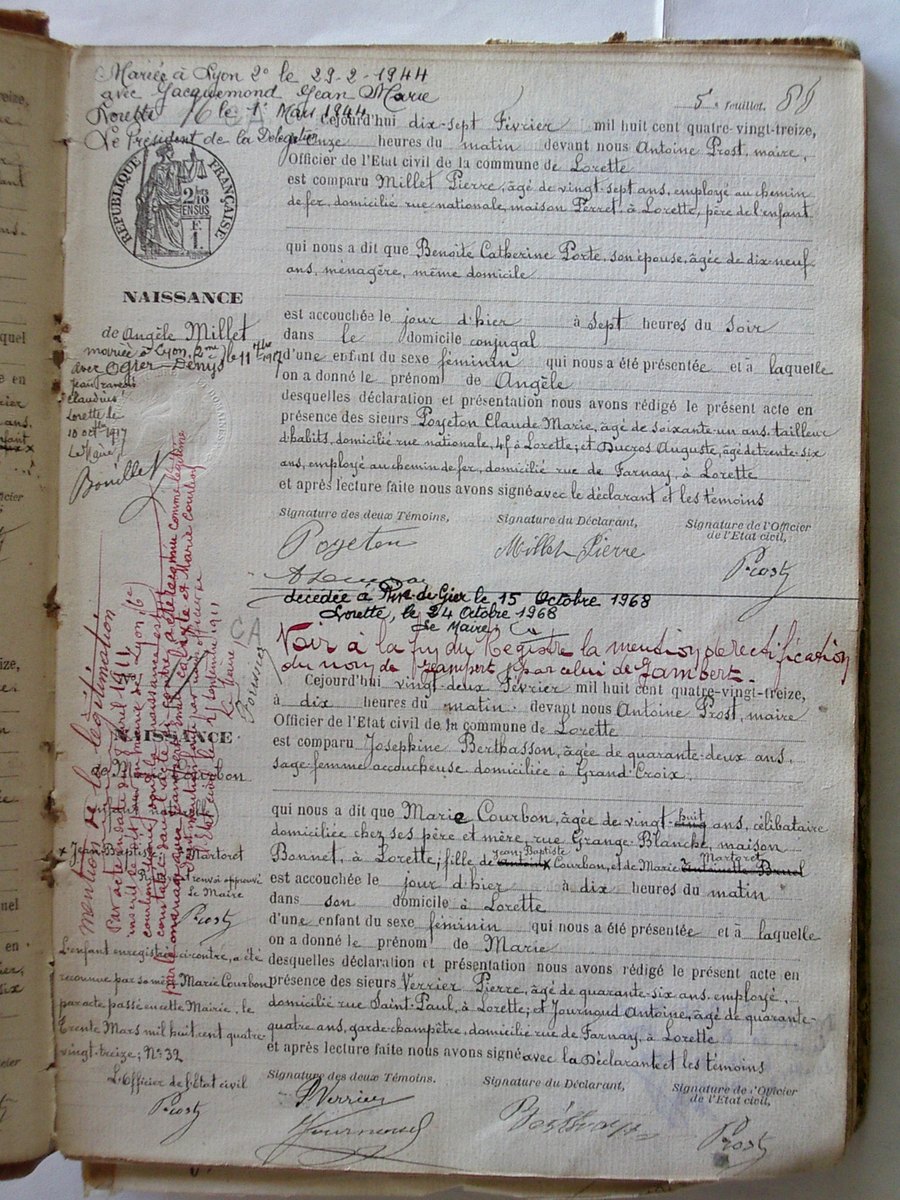 Mariée à Lyon 2º le 29-2-1944
avec Jacquemond Jean Marie
Lorette le 1er Mars 1944
Le Président de la Délégation
RÉPUBLIQUE FRANÇAISE
2/10
EN SUS
F.
1.
NAISSANCE
de Angèle Millet
mariée à Lyon, 2me le 11 1917
avec Ogier Denys
Jean François
Claudius
Lorette le
10 oct 1917
Le Maire,
5e feuillet.
Cejourd'hui dix-sept Février mil huit cent quatre-vingt-treize,
à onze heures du matin devant nous Antoine Prost, maire,
Officier de l'Etat civil de la commune de Lorette
est comparu Millet Pierre, âgé de vingt-sept ans, employé au chemin
de fer, domicilié rue nationale, maison Ferret, à Lorette, père de l'enfant.
qui nous a dit que Benoîte Catherine Porte, son épouse, âgée de dix-neuf
ans, ménagère, même domicile
est accouchée le jour d'hier à sept heures du soir
dans le domicile conjugal
d'une enfant du sexe féminin qui nous a été présentée et à laquelle
on a donné le prénom de Angèle
desquelles déclaration et présentation nous avons rédigé le présent acte en
présence des sieurs Poyeton Claude Marie, âgé de soixante-un ans, tailleur
d'habits, domicilié rue nationale, 45 à Lorette; et Ducros Auguste, âgé de trente-six
ans, employé au chemin de fer, domicilié rue de Farnay, à Lorette
et après lecture faite nous avons signé avec le déclarant et les témoins
Signature des deux Témoins,
Signature du Déclarant,
Signature de l'Officier
de l'Etat civil,
Poyeton
Millet Pierre
Prost
décédée à Rive-de-Gier le 15 Octobre 1968
Lorette, le 24 Octobre 1968
Le Maire
Voir à la fin du Registre la mention de rectification
du nom de Jeampert par celui de Jambert.
mention de la légitimation
NAISSANCE
Jean Baptiste
Martoret
renvoi approuvé
Le Maire
Prost
L'enfant enregistrée ci-contre, a été
reconnue par sa mère Marie Courbon
par acte passé en cette Mairie, le
trente Mars mil huit cent quatre-
vingt-treize; Nº 32
L'Officier de l'état civil
Prost
Cejourd'hui vingt-deux Février mil huit cent quatre-vingt-treize,
à dix heures du matin devant nous Antoine Prost, maire
Officier de l'Etat civil de la commune de Lorette
est comparu Joséphine Berthasson, âgée de quarante-deux ans,
sage-femme accoucheuse domiciliée à Grand'Croix,
qui nous a dit que Marie Courbon, âgée de vingt-huit ans, célibataire
domiciliée chez ses père et mère, rue Grange-Blanche, maison
Bonnet, à Lorette; fille de Jean Baptiste Courbon, et de Marie Martoret
est accouchée le jour d'hier à dix heures du matin
dans son domicile à Lorette
d'une enfant du sexe féminin qui nous a été présentée et à laquelle
on a donné le prénom de Marie
desquelles déclaration et présentation nous avons rédigé le présent acte en
présence des sieurs Verrier Pierre, âgé de quarante-six ans, employé,
domicilié rue Saint-Paul, à Lorette; et Journoud Antoine, âgé de quarante-
quatre ans, garde-champêtre, domicilié rue de Farnay, à Lorette
et après lecture faite nous avons signé avec la Déclarante et les témoins
Signature des deux Témoins.
Signature du Déclarant,
Signature de l'Officier
de l'Etat civil,
Verrier
Journoud
Prost